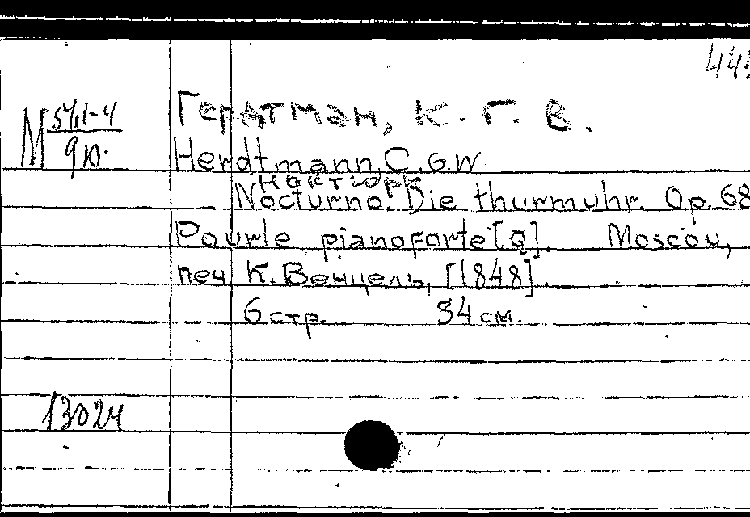 44
М 541-4
9 10.
Гердтман, К. Г. В.
Herdtmann, C. G. W.
Ноктюрн
Nocturno. Die thurmuhr. Op. 68
Pourle pianoforte [Q]. Moscou,
печ К. Венцель, [1848]
6 стр. 34 см.
13024